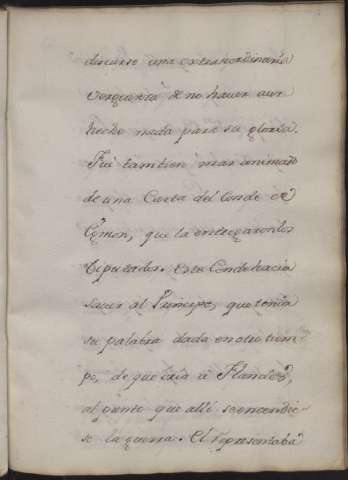 discurso una extrahordinaria
verguenza de no haver aun
hecho nada para su gloria.
Fué tambien mas animado
de una Carta del Conde de
Egmon, que la entregaron los
Diputados. Este Conde hacia
saver al Principe, que tenia
su palabra dada en otro tiem-
po, de que iria à Flandes,
al punto que allí se encendie-
se la guerra. Él representaba